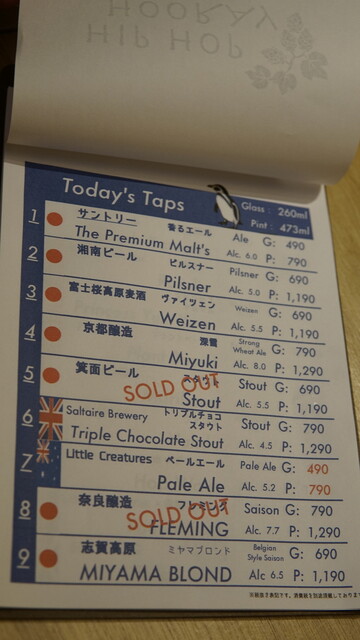 HIP HOP
HOORAY
Today's Taps
Glass : 260ml
Pint : 473ml
1 サントリー 香るエール Ale G: 490
The Premium Malt's Alc. 6.0 P: 790
2 湘南ビール ピルスナー Pilsner G: 690
Pilsner Alc. 5.0 P: 1,190
3 富士桜高原麦酒 ヴァイツェン Weizen G: 690
Weizen Alc. 5.5 P: 1,190
4 京都醸造 深雪 Strong Wheat Ale G: 790
Miyuki Alc. 8.0 P: 1,290
5 箕面ビール スタウト Stout G: 690
SOLD OUT
Stout Alc. 5.5 P: 1,190
6 Saltaire Brewery トリプルチョコ スタウト Stout G: 790
Triple Chocolate Stout Alc. 4.5 P: 1,290
7 Little Creatures ペールエール Pale Ale G: 490
Pale Ale Alc. 5.2 P: 790
8 奈良醸造 フレミング Saison G: 790
SOLD OUT
FLEMING Alc. 7.7 P: 1,290
9 志賀高原 ミヤマブロンド Belgian Style Saison G: 690
MIYAMA BLOND Alc 6.5 P: 1,190